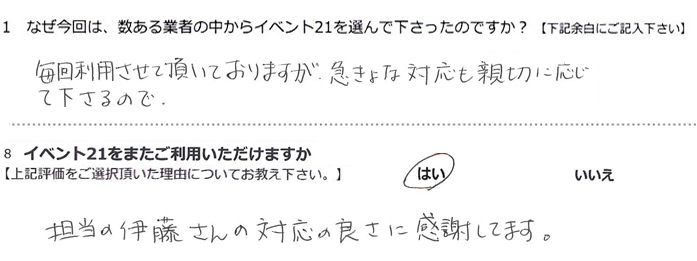 1 なぜ今回は、数ある業者の中からイベント21を選んで下さったのですか？【下記余白にご記入下さい】
毎回利用させて頂いておりますが、急きょな対応も親切に応じ
て下さるので、
8 イベント21をまたご利用いただけますか
【上記評価をご選択頂いた理由についてお教え下さい。】 はい いいえ
担当の伊藤さんの対応の良さに感謝してます。